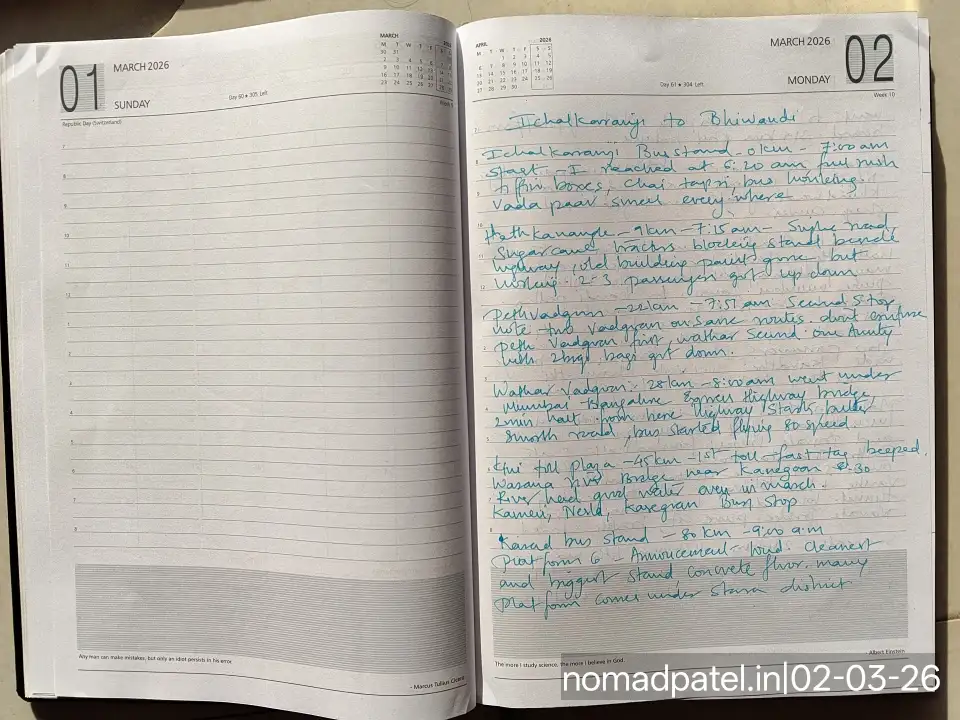 01
MARCH 2026
SUNDAY
Day 60 ★ 305 Left
MARCH 2026
M T W T F S S
30 31 1
2 3 4 5 6 7 8
9 10 11 12 13 14 15
16 17 18 19 20 21 22
23 24 25 26 27 28 29
Republic Day (Switzerland)
Any man can make mistakes, but only an idiot persists in his error.
- Marcus Tullius Cicero
APRIL 2026
M T W T F S S
1 2 3 4 5
6 7 8 9 10 11 12
13 14 15 16 17 18 19
20 21 22 23 24 25 26
27 28 29 30
MARCH 2026
MONDAY
02
Day 61 ★ 304 Left
Week 10
Ichalkaranji to Bhiwandi
Ichalkaranji Bus stand - 0 km - 7:00 am
start - I reached at 6:20 am full rush
tiffin boxes, chai tapri, bus honking.
Vada paav smell every where
Hathkanangle - 9 km - 7:15 am - road,
Sugarcane tractors blocking stand beside
highway, old building paint gone but
working. 2-3 passenger got up down
Peth Vadgaon - 22 km - 7:51 am Second Stop
note two Vadgaon on same routes. don't confuse
Peth Vadgaon first, wathar second. one Aunty
with 2 bags got down.
Wathar Vadgaon. 28 km - 8:00 am went under
Mumbai - Bangalore Express Highway bridge,
2 min halt. from here highway starts, butter
smooth road, bus started flying 80 speed.
Kini toll plaza - 45 km - 1st toll - fast tag beeped.
Warana river Bridge near Kanegaon 8:30
River head good water even in march.
Kameri, Nerla, Kasegaon Bus Stop
Karad bus stand - 80 km - 9:00 a.m
Platform 6 - Annoucement - loud. cleanest
and biggest stand concrete floor. many
platform comes under Satara district
The more I study science, the more I believe in God.
- Albert Einstein
nomadpatel.in|02-03-26